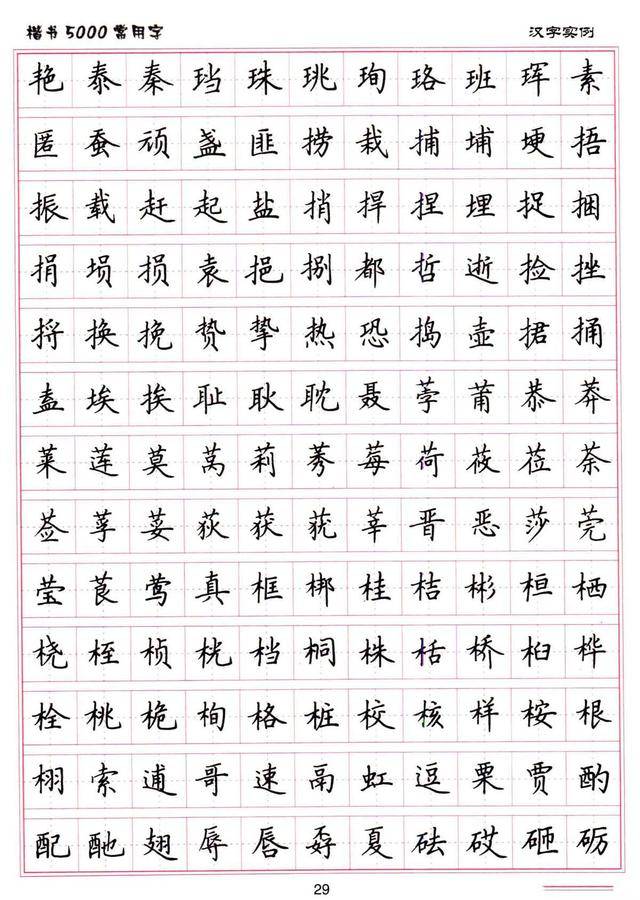 楷书5000常用字 汉字实例
艳泰秦珰珠珧珣珞班珲素
匿蚕顽盏匪捞栽捕埔埂捂
振载赶起盐捎捍捏埋捉捆
捐埙损袁挹捌都哲逝捡挫
捋换挽贽挚热恐捣壶捃捅
盍埃挨耻耿耽聂荸莆恭莽
莱莲莫莴莉莠莓荷莜莅荼
莶莩荽荻获莸莘晋恶莎莞
莹莨莺真框梆桂桔彬桓栖
桡桎桢桄档桐株栝桥桕桦
栓桃桅栒格桩校核样桉根
栩索逋哥速鬲虹逗栗贾酌
配酏翅辱唇孬夏砝砹砸砺
29